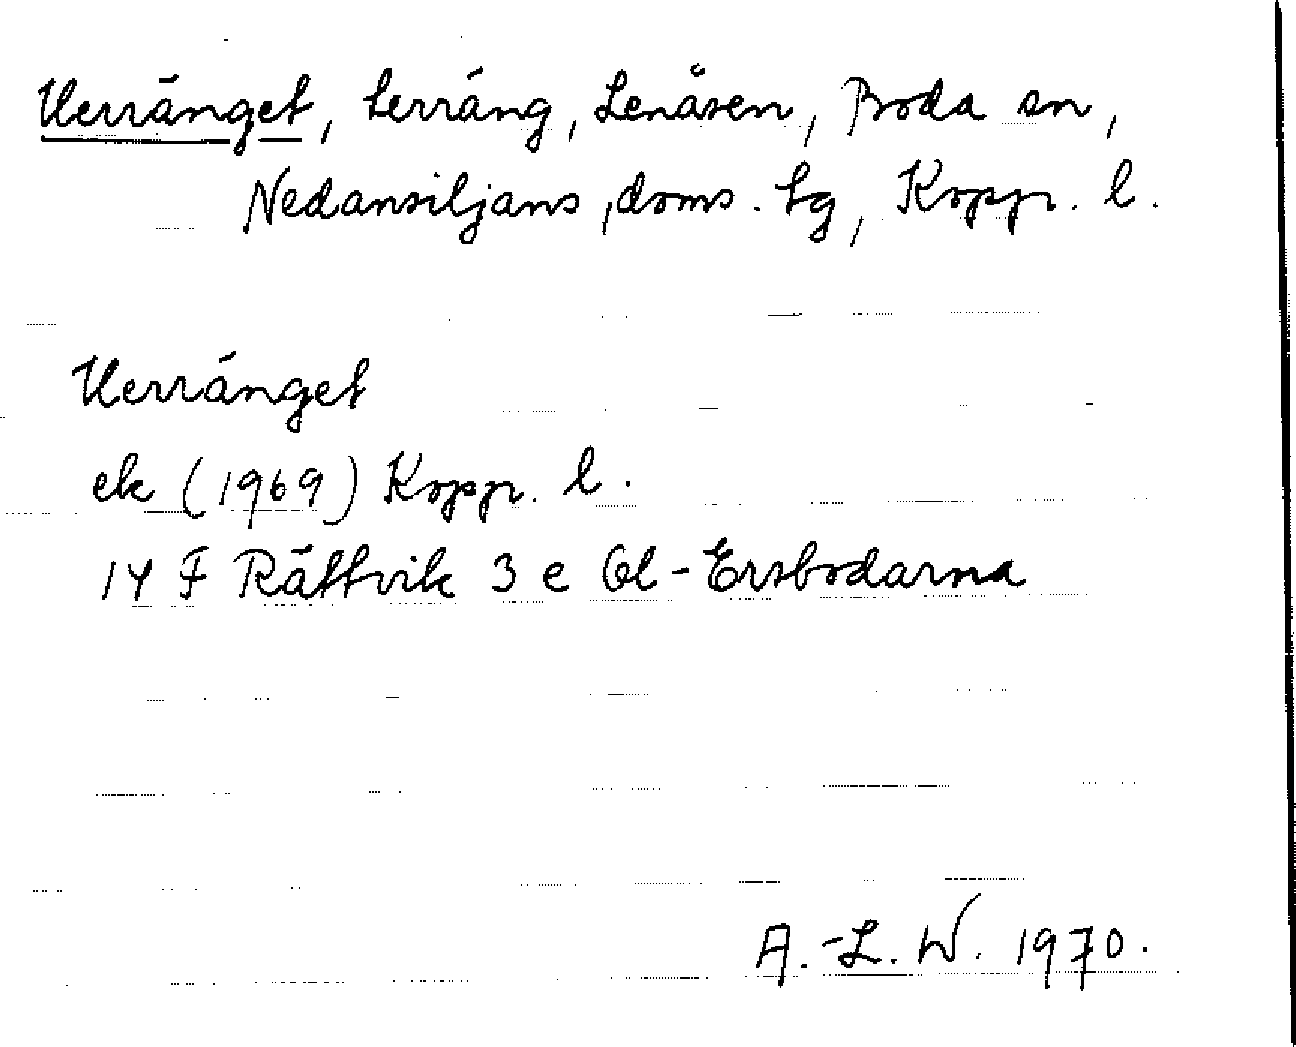 Uerränget, terräng, Lenåsen, Boda sn,
Nedansiljans doms. tg, Kopp. l.
Uerränget
ek (1969) Kopp. l.
14 F Rättvik 3 e Gl-Ersbodarna
A.-L. W. 1970.